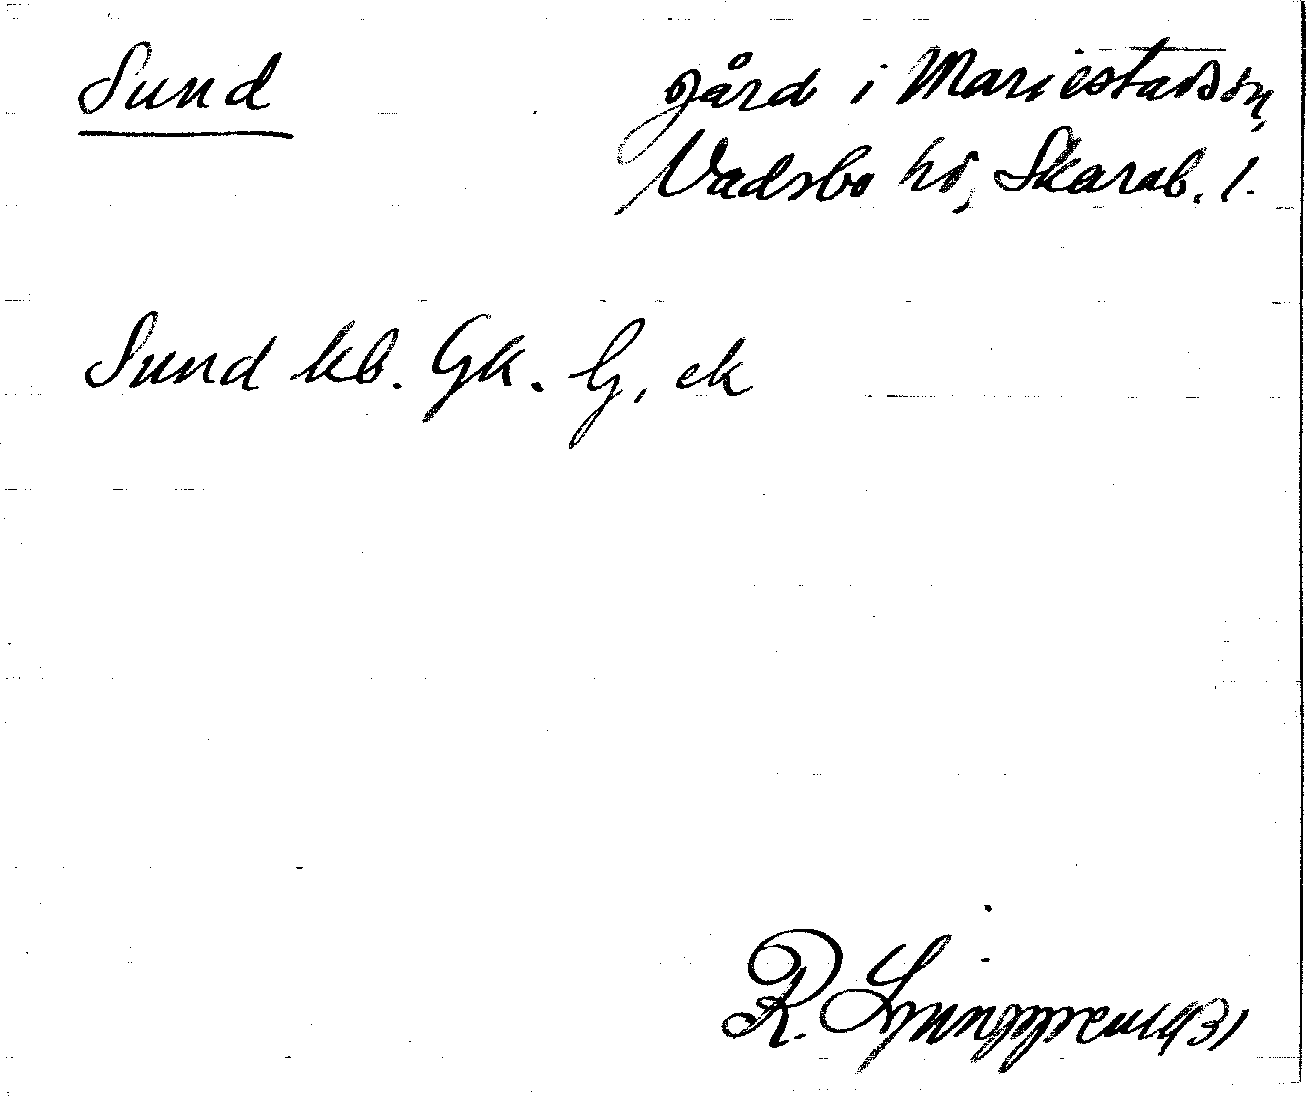 Sund
gård i Mariestads sn,
Vadsbo hd, Skarab. l.
Sund kb. Gk. G, ek
R. Ljunggren 1931